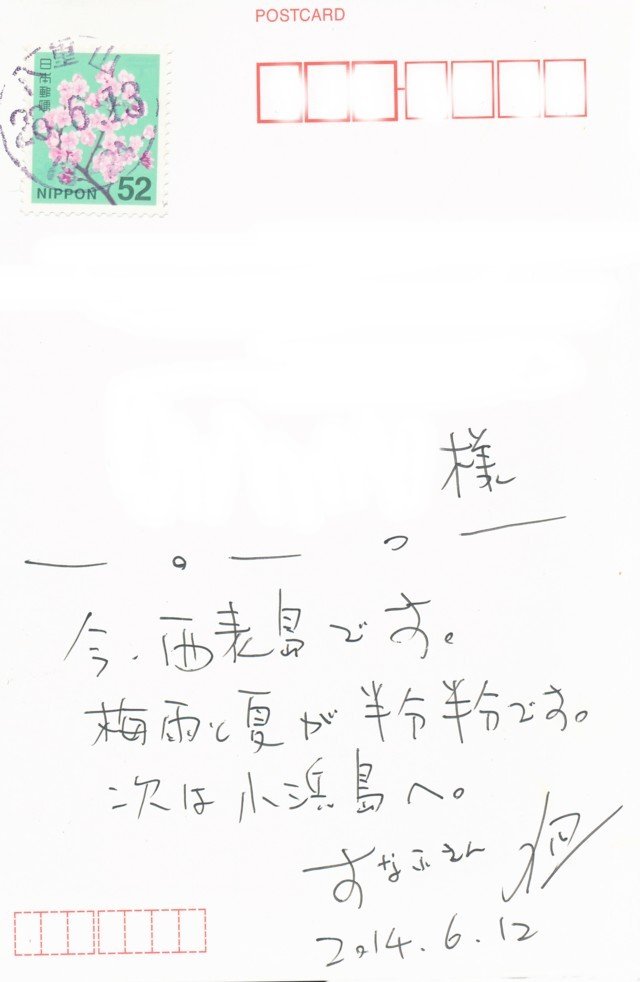 POSTCARD
日本郵便
八重山
26.6.13
NIPPON 52
様
今、西表島です。
梅雨と夏が半分半分です。
次は小浜島へ。
すなふえん
2014.6.12